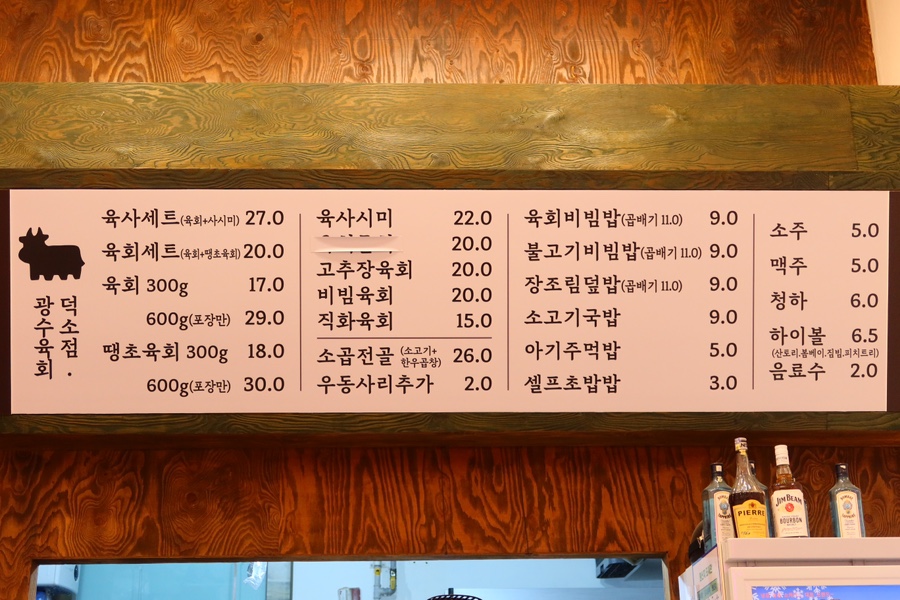 광수육회
덕소점.
육사세트(육회+사시미) 27.0
육회세트(육회+땡초육회) 20.0
육회 300g 17.0
600g(포장만) 29.0
땡초육회 300g 18.0
600g(포장만) 30.0
육사시미 22.0
20.0
고추장육회 20.0
비빔육회 20.0
직화육회 15.0
소곱전골 (소고기+한우곱창) 26.0
우동사리추가 2.0
육회비빔밥(곱배기 11.0) 9.0
불고기비빔밥(곱배기 11.0) 9.0
장조림덮밥(곱배기 11.0) 9.0
소고기국밥 9.0
아기주먹밥 5.0
셀프초밥밥 3.0
소주 5.0
맥주 5.0
청하 6.0
하이볼 6.5
(산토리.봄베이.짐빔.피치트리)
음료수 2.0
PIERRE
JIM BEAM
BOURBON